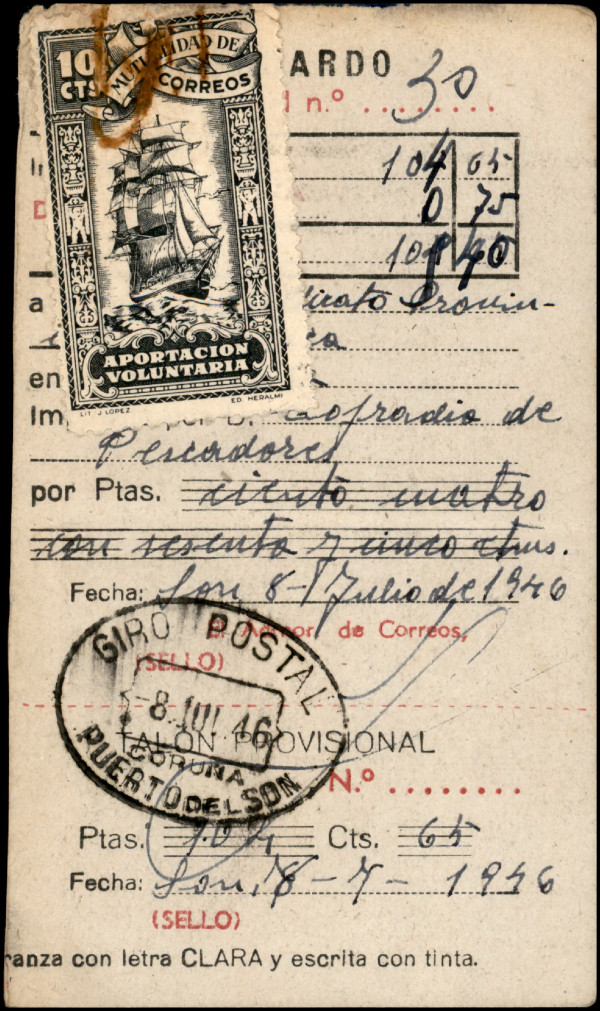 10
CTS
MUTUALIDAD DE
CORREOS
ARDO
l n.º ........ 30
104 65
0 75
40
a
Provin-
APORTACION
VOLUNTARIA
en
LIT. J. LOPEZ
ED. HERALMI
Im Cofradia de
Pescadores
por Ptas. ciento cuatro
con sesenta y cinco ctms.
Fecha: Son 8 - Julio de 1946
de Correos,
(SELLO)
GIRO POSTAL
-8 JUL 46
CORUÑA
PUERTO DEL SON
TALON PROVISIONAL
N.º ........
Ptas. 104 Cts. 65
Fecha: Son, 8 - 7 - 1946
(SELLO)
ranza con letra CLARA y escrita con tinta.